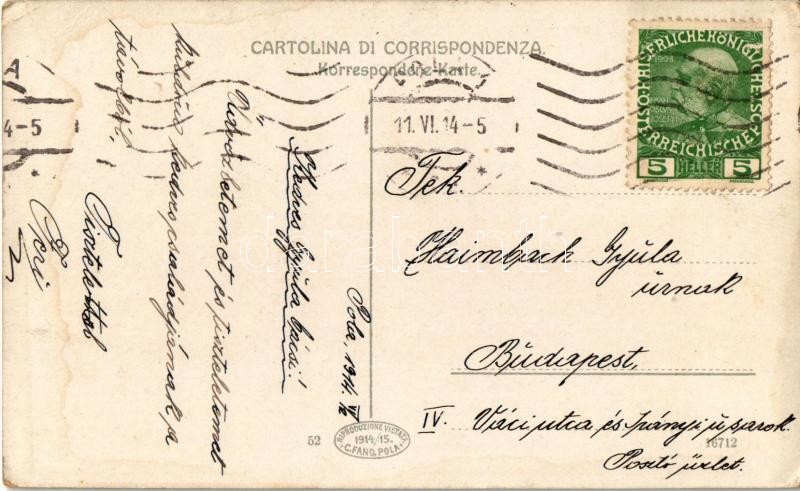 CARTOLINA DI CORRISPONDENZA.
Korrespondenz-Karte.
11. VI. 14-5
A
4-5
KAISERLICHE KÖNIGLICHE
ÖSTERREICHISCHE
1908
5 HELLER 5
Pola, 1914. VI/
Kedves Gyula bácsi!
Üdvözletemet és tiszteletemet
küldöm kedves családjának, a
távolból.
Tisztelettel
Tek.
Haimbach Gyula
úrnak
Budapest,
IV. Váci utca és Irányi u sarok.
Posztó üzlet.
52
RIPRODUZIONE VIETATA
1914/15.
C. FANO, POLA
16712
darabanth